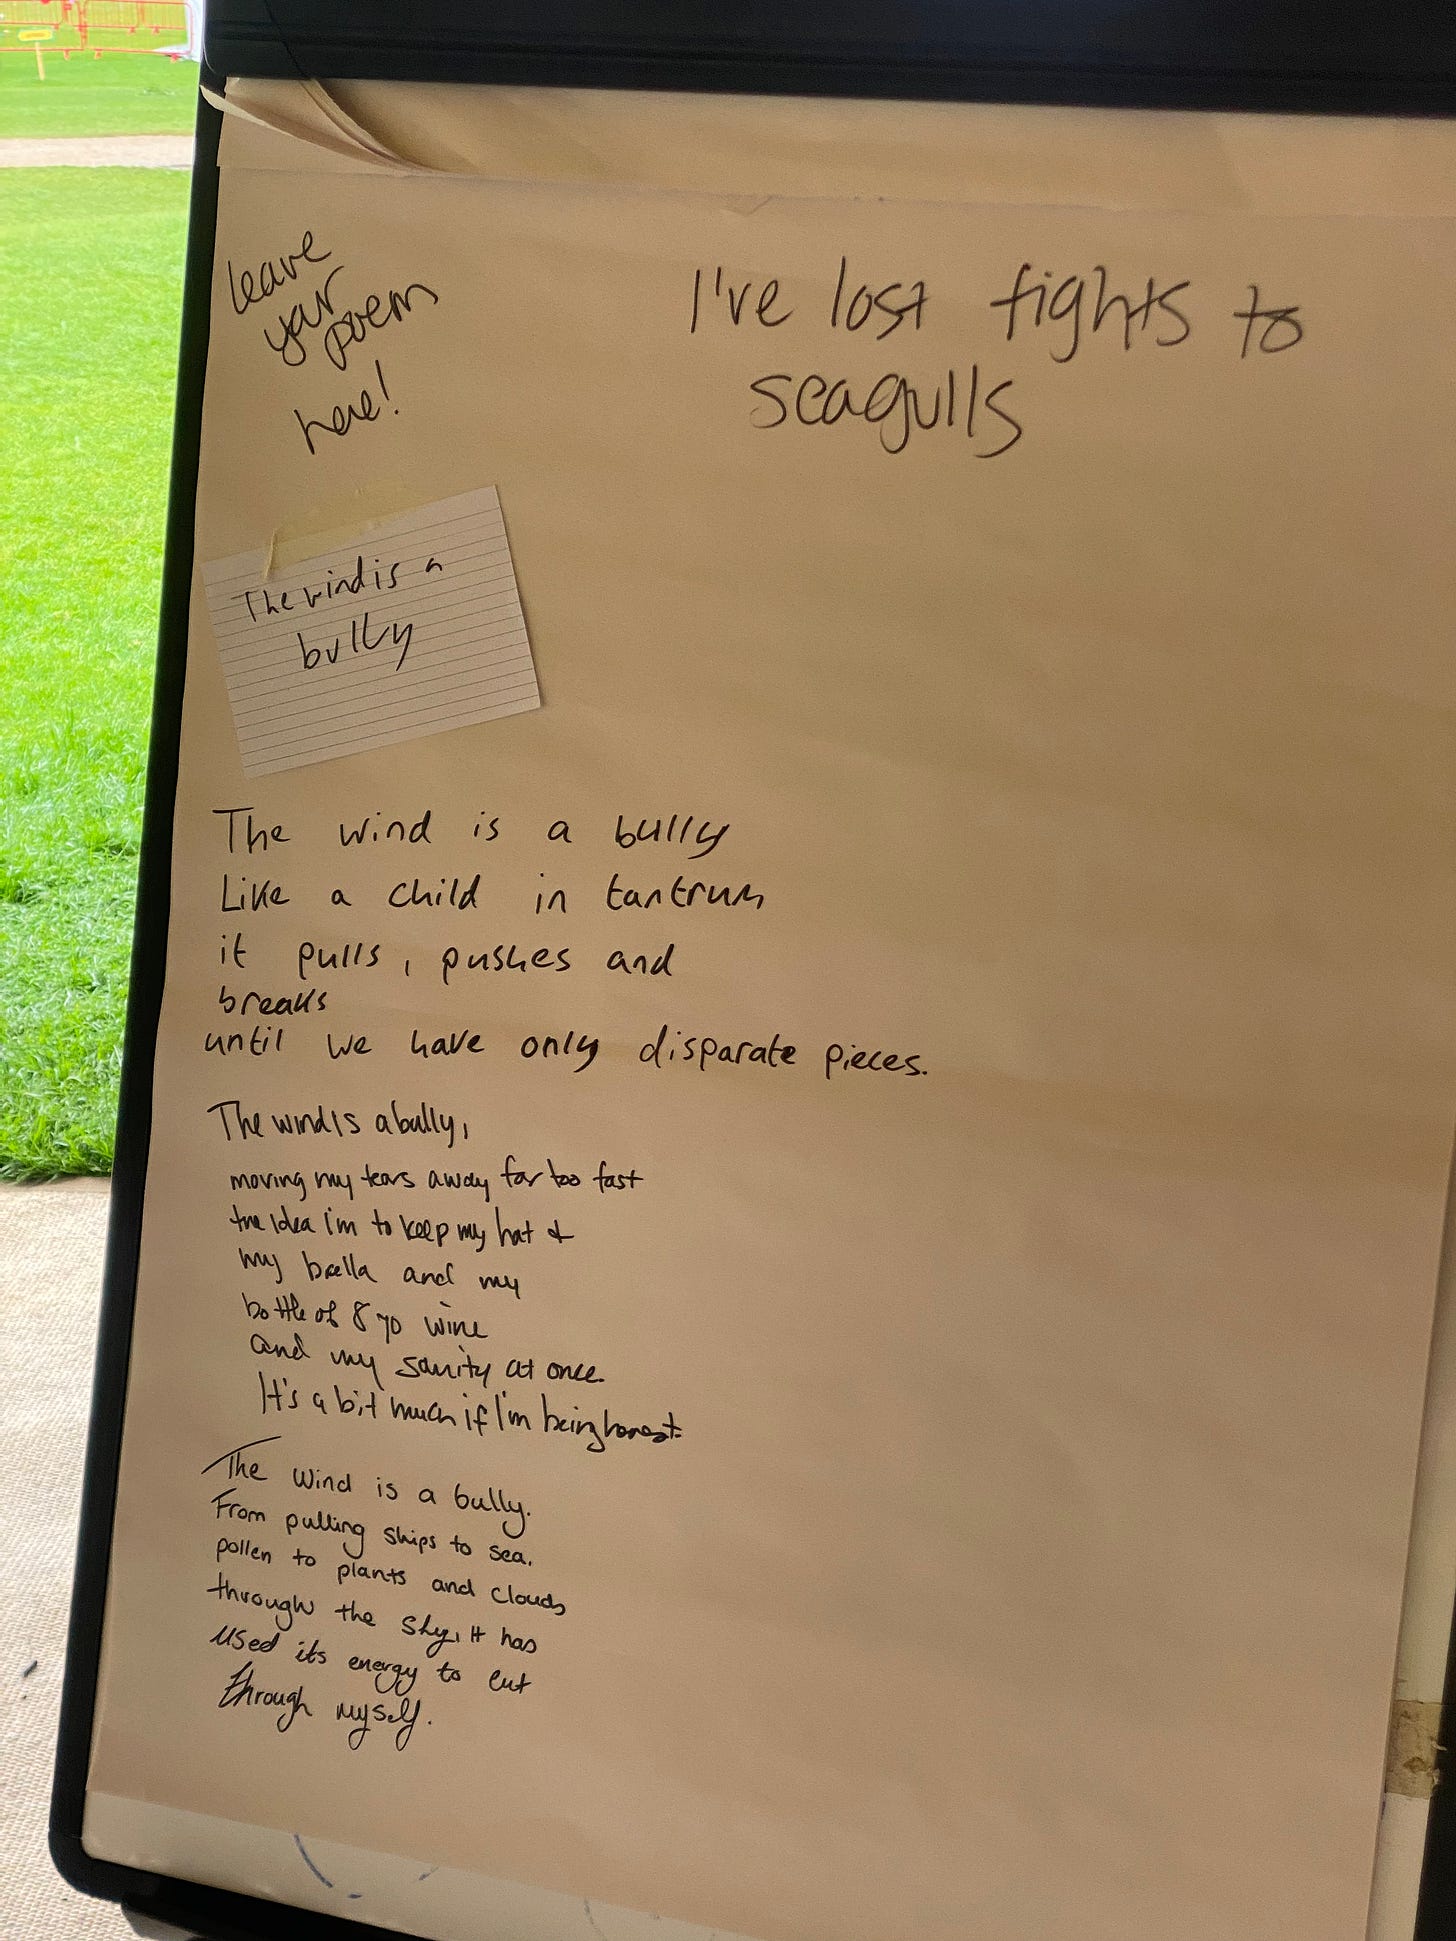 leave
your
poem
here!
I've lost fights to
seagulls
The wind is a
bully
The wind is a bully
Like a child in tantrum
it pulls, pushes and
breaks
until we have only disparate pieces.
The wind is a bully,
moving my tears away far too fast
the idea I'm to keep my hat &
my brella and my
bottle of £70 wine
and my sanity at once.
It's a bit much if I'm being honest.
The wind is a bully.
From pulling ships to sea,
pollen to plants and clouds
through the sky, it has
used its energy to cut
through myself.